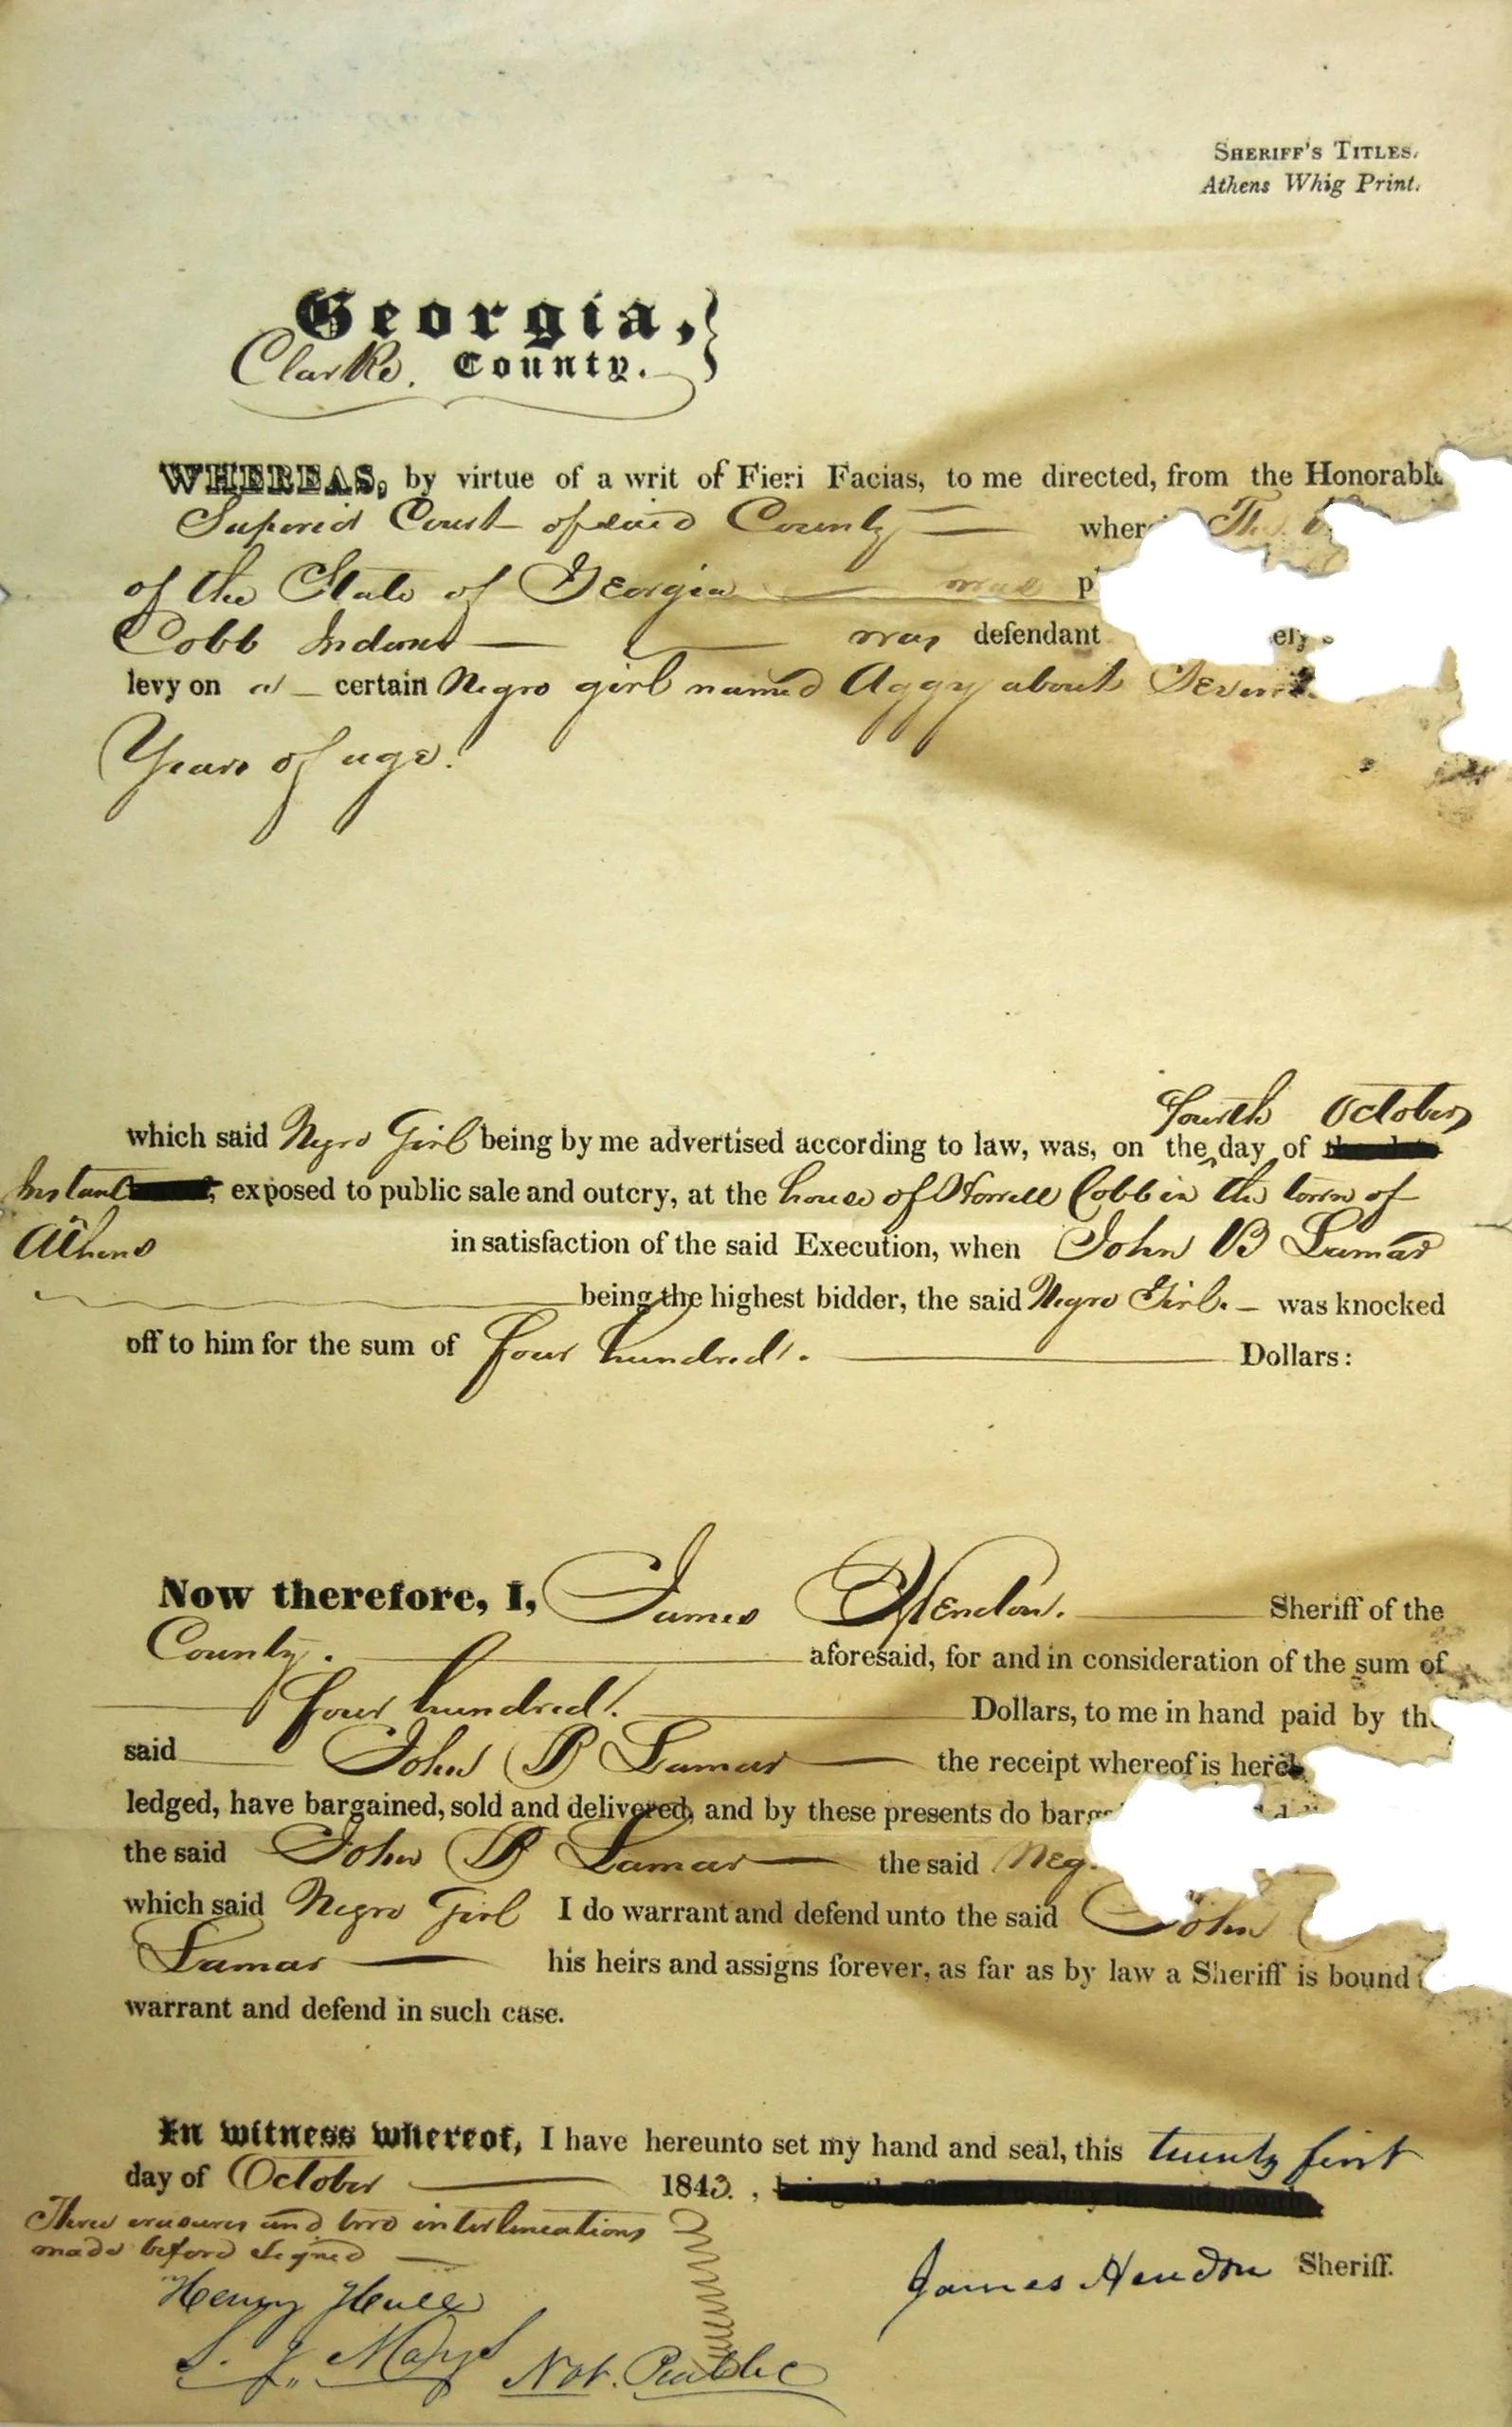 SHERIFF'S TITLES.
Athens Whig Print.
Georgia,
Clarke. County.
WHEREAS, by virtue of a writ of Fieri Facias, to me directed, from the Honorable
Superior Court of said County
of the State of Georgia was
Cobb Indorser was defendant
levy on a certain Negro girl named Aggy about
Years of age.
fourth October
which said Negro Girl being by me advertised according to law, was, on the day of
Instant exposed to public sale and outcry, at the house of Howell Cobb in the town of
Athens in satisfaction of the said Execution, when John B Lamar
being the highest bidder, the said Negro Girl. was knocked
off to him for the sum of four hundred. Dollars:
Now therefore, I, James Hendon. Sheriff of the
County. aforesaid, for and in consideration of the sum of
four hundred. Dollars, to me in hand paid by
said John B Lamar the receipt whereof is
ledged, have bargained, sold and delivered, and by these presents do
the said John B Lamar the said
which said Negro Girl I do warrant and defend unto the said John
Lamar his heirs and assigns forever, as far as by law a Sheriff is bound
warrant and defend in such case.
In witness whereof, I have hereunto set my hand and seal, this twenty first
day of October 1843. ,
Three erasures and two interlineations
made before signed
James Hendon Sheriff.
Henry Hull
Not. Public